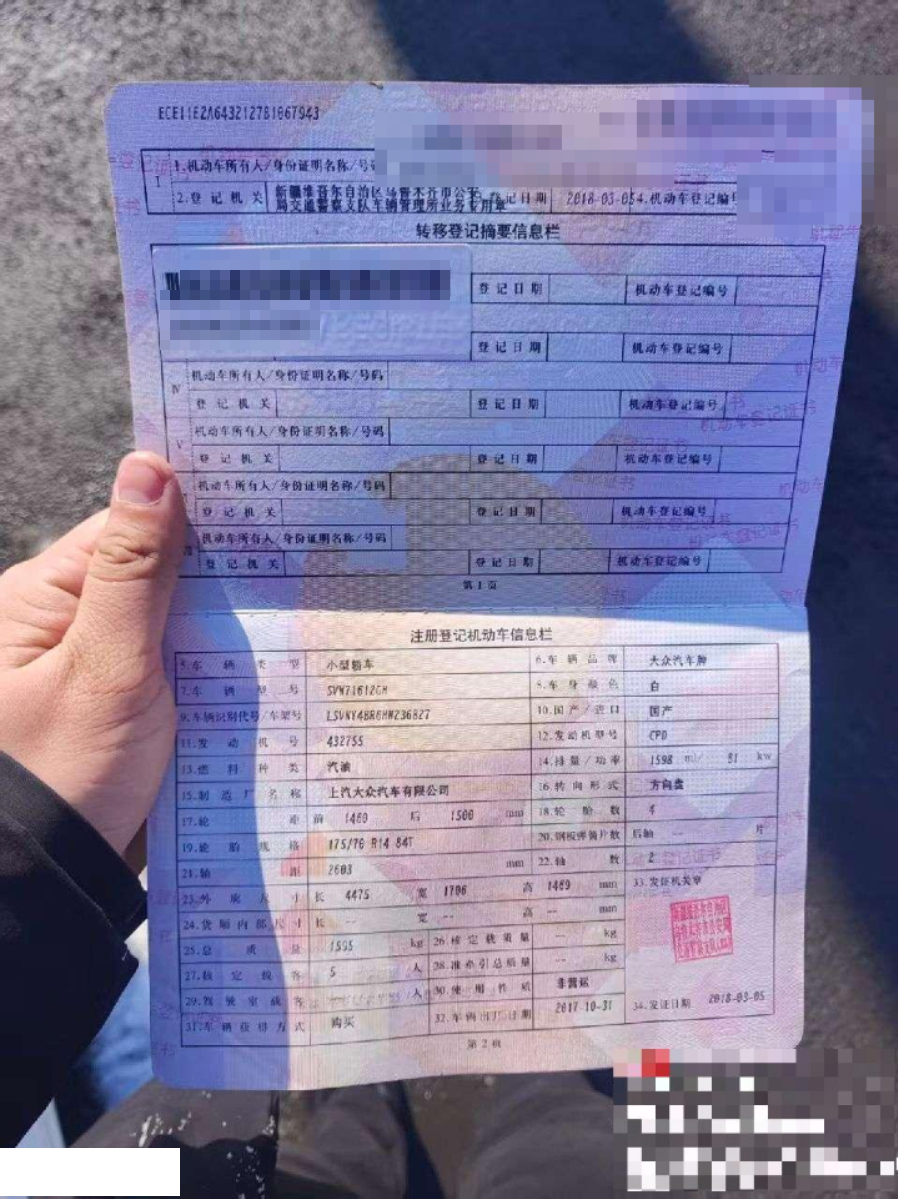 1.机动车所有人/身份证明名称/号码
2.登记机关 新疆维吾尔自治区乌鲁木齐市公安局交通警察支队车辆管理所业务专用章 登记日期 2018-03-05 4.机动车登记编号
转移登记摘要信息栏
登记日期 机动车登记编号
登记日期 机动车登记编号
Ⅳ 机动车所有人/身份证明名称/号码
登记机关 登记日期 机动车登记编号
Ⅴ 机动车所有人/身份证明名称/号码
登记机关 登记日期 机动车登记编号
机动车所有人/身份证明名称/号码
登记机关 登记日期 机动车登记编号
机动车所有人/身份证明名称/号码
登记机关 登记日期 机动车登记编号
第1页
注册登记机动车信息栏
5.车辆类型 小型轿车 6.车辆品牌 大众汽车牌
7.车辆型号 车身颜色 白
9.车辆识别代号/车架号 10.国产/进口 国产
11.发动机号 432755 12.发动机型号 CPD
13.燃料种类 汽油 14.排量/功率 1598 ml/ 81 kw
15.制造厂名称 上汽大众汽车有限公司 16.转向形式 方向盘
17.轮距 前 1460 后 1500 mm 18.轮胎数 4
19.轮胎规格 175/70 R14 84T 20.钢板弹簧片数 后轴 -- 片
21.轴距 2603 mm 22.轴数 2
23.外廓尺寸 长 4475 宽 1706 高 1469 mm 33.发证机关章
24.货厢内部尺寸 长 -- 宽 -- 高 -- mm
25.总质量 1595 kg 26.核定载质量 -- kg
27.核定载客 5 人 28.准牵引总质量 -- kg
29.驾驶室载客 人 30.使用性质 非营运
31.车辆获得方式 购买 32.车辆出厂日期 2017-10-31 34.发证日期 2018-03-05
第2页